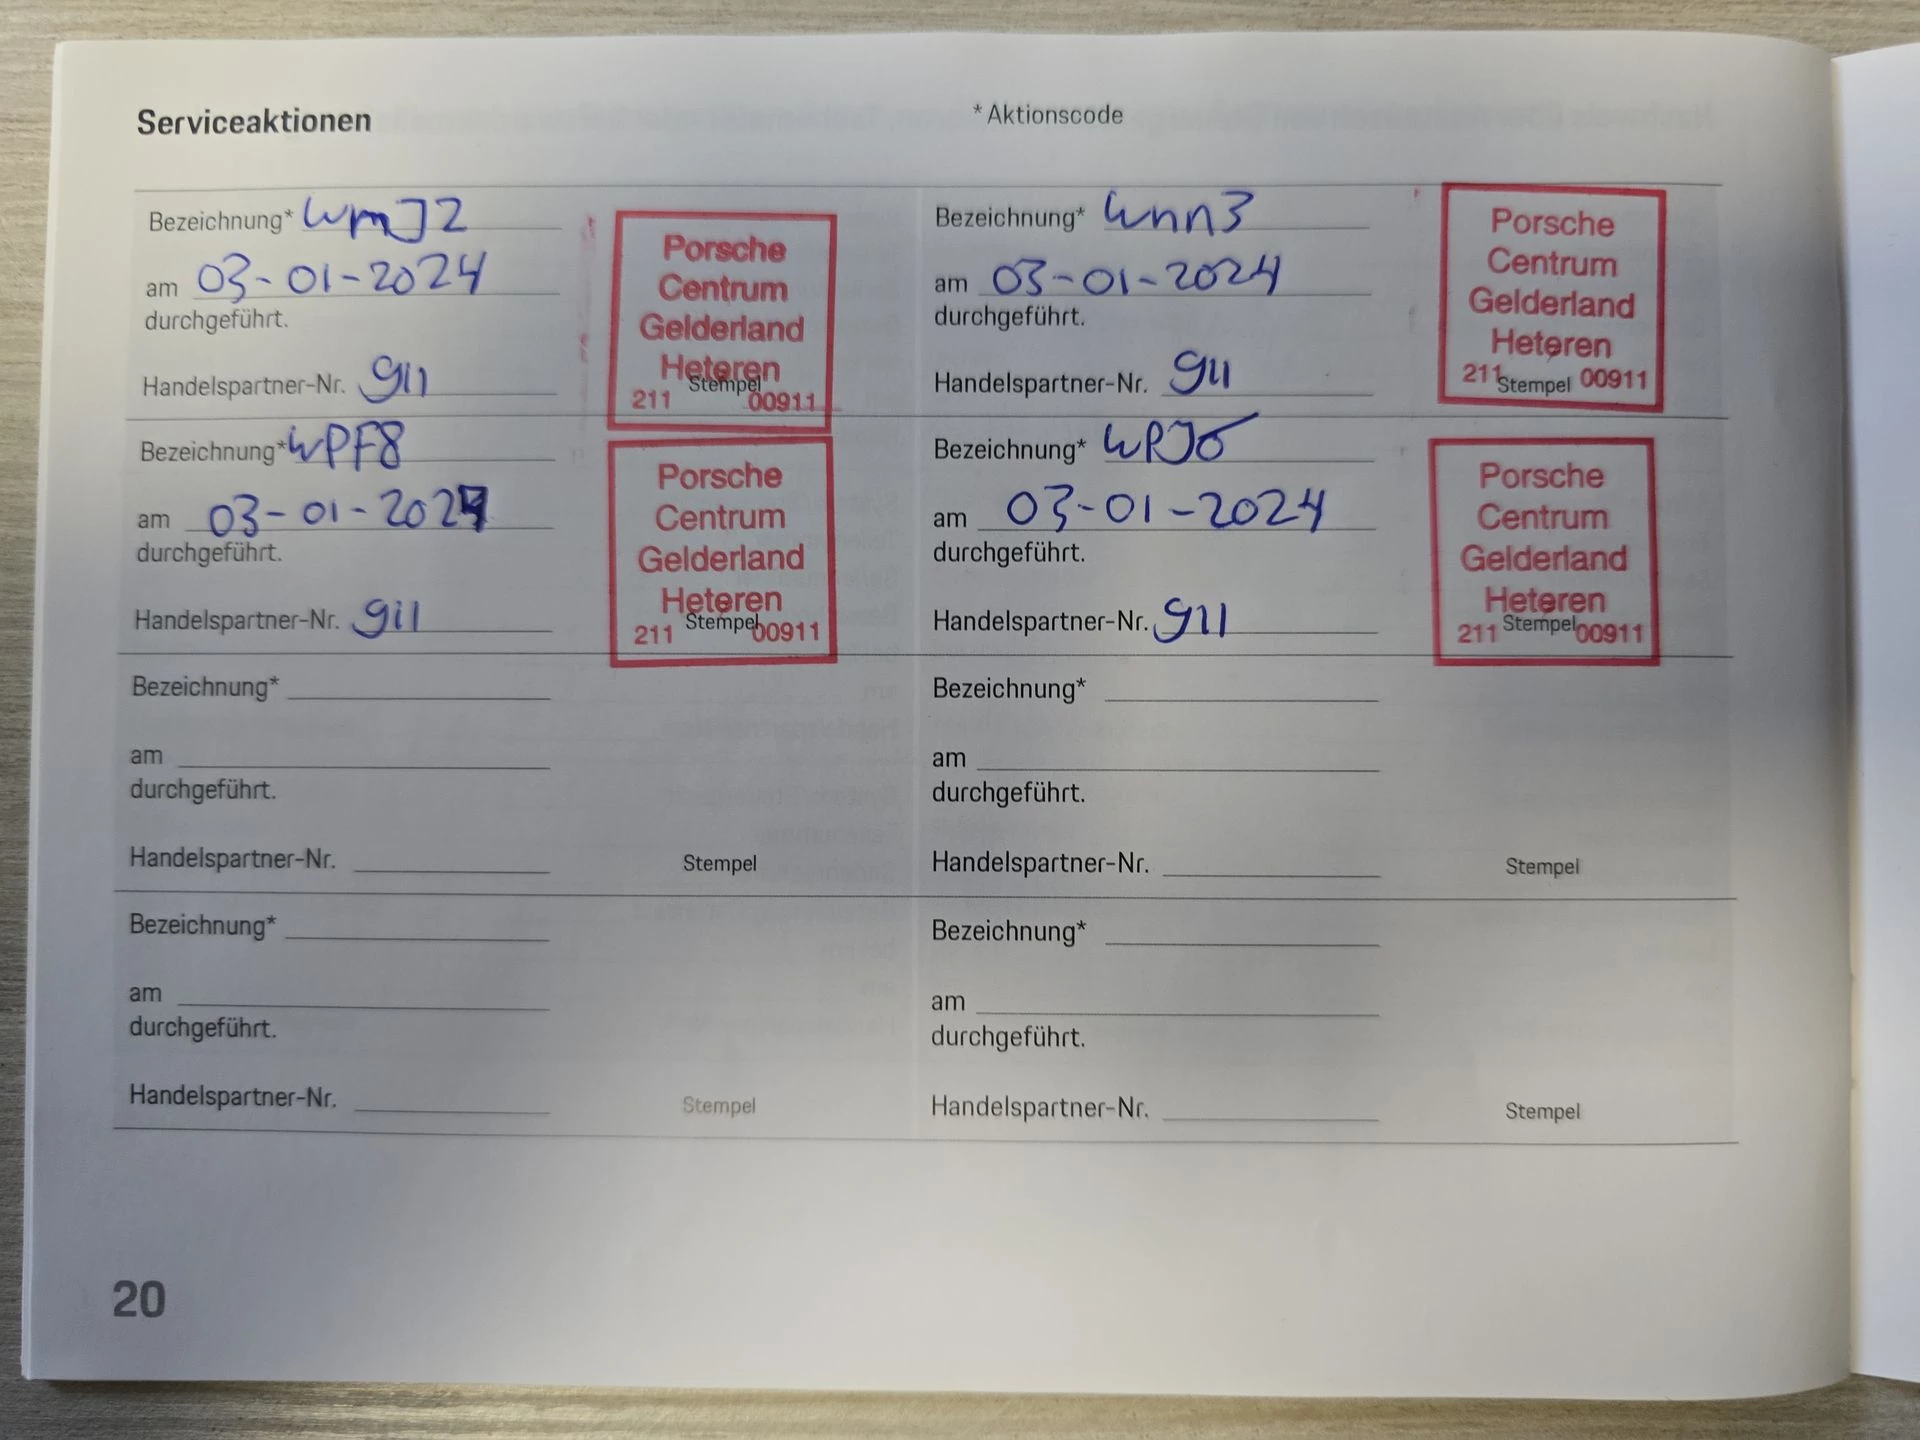 Serviceaktionen
* Aktionscode
Bezeichnung* WmJ2
am 03-01-2024
durchgeführt.
Handelspartner-Nr. 911
Porsche
Centrum
Gelderland
Heteren
Stempel
211 00911
Bezeichnung* Wnn3
am 03-01-2024
durchgeführt.
Handelspartner-Nr. 911
Porsche
Centrum
Gelderland
Heteren
211 Stempel 00911
Bezeichnung* WPF8
am 03-01-2024
durchgeführt.
Handelspartner-Nr. 911
Porsche
Centrum
Gelderland
Heteren
211 Stempel 00911
Bezeichnung* WPJ6
am 03-01-2024
durchgeführt.
Handelspartner-Nr. 911
Porsche
Centrum
Gelderland
Heteren
211 Stempel 00911
Bezeichnung*
am
durchgeführt.
Handelspartner-Nr. Stempel
Bezeichnung*
am
durchgeführt.
Handelspartner-Nr. Stempel
Bezeichnung*
am
durchgeführt.
Handelspartner-Nr. Stempel
Bezeichnung*
am
durchgeführt.
Handelspartner-Nr. Stempel
20